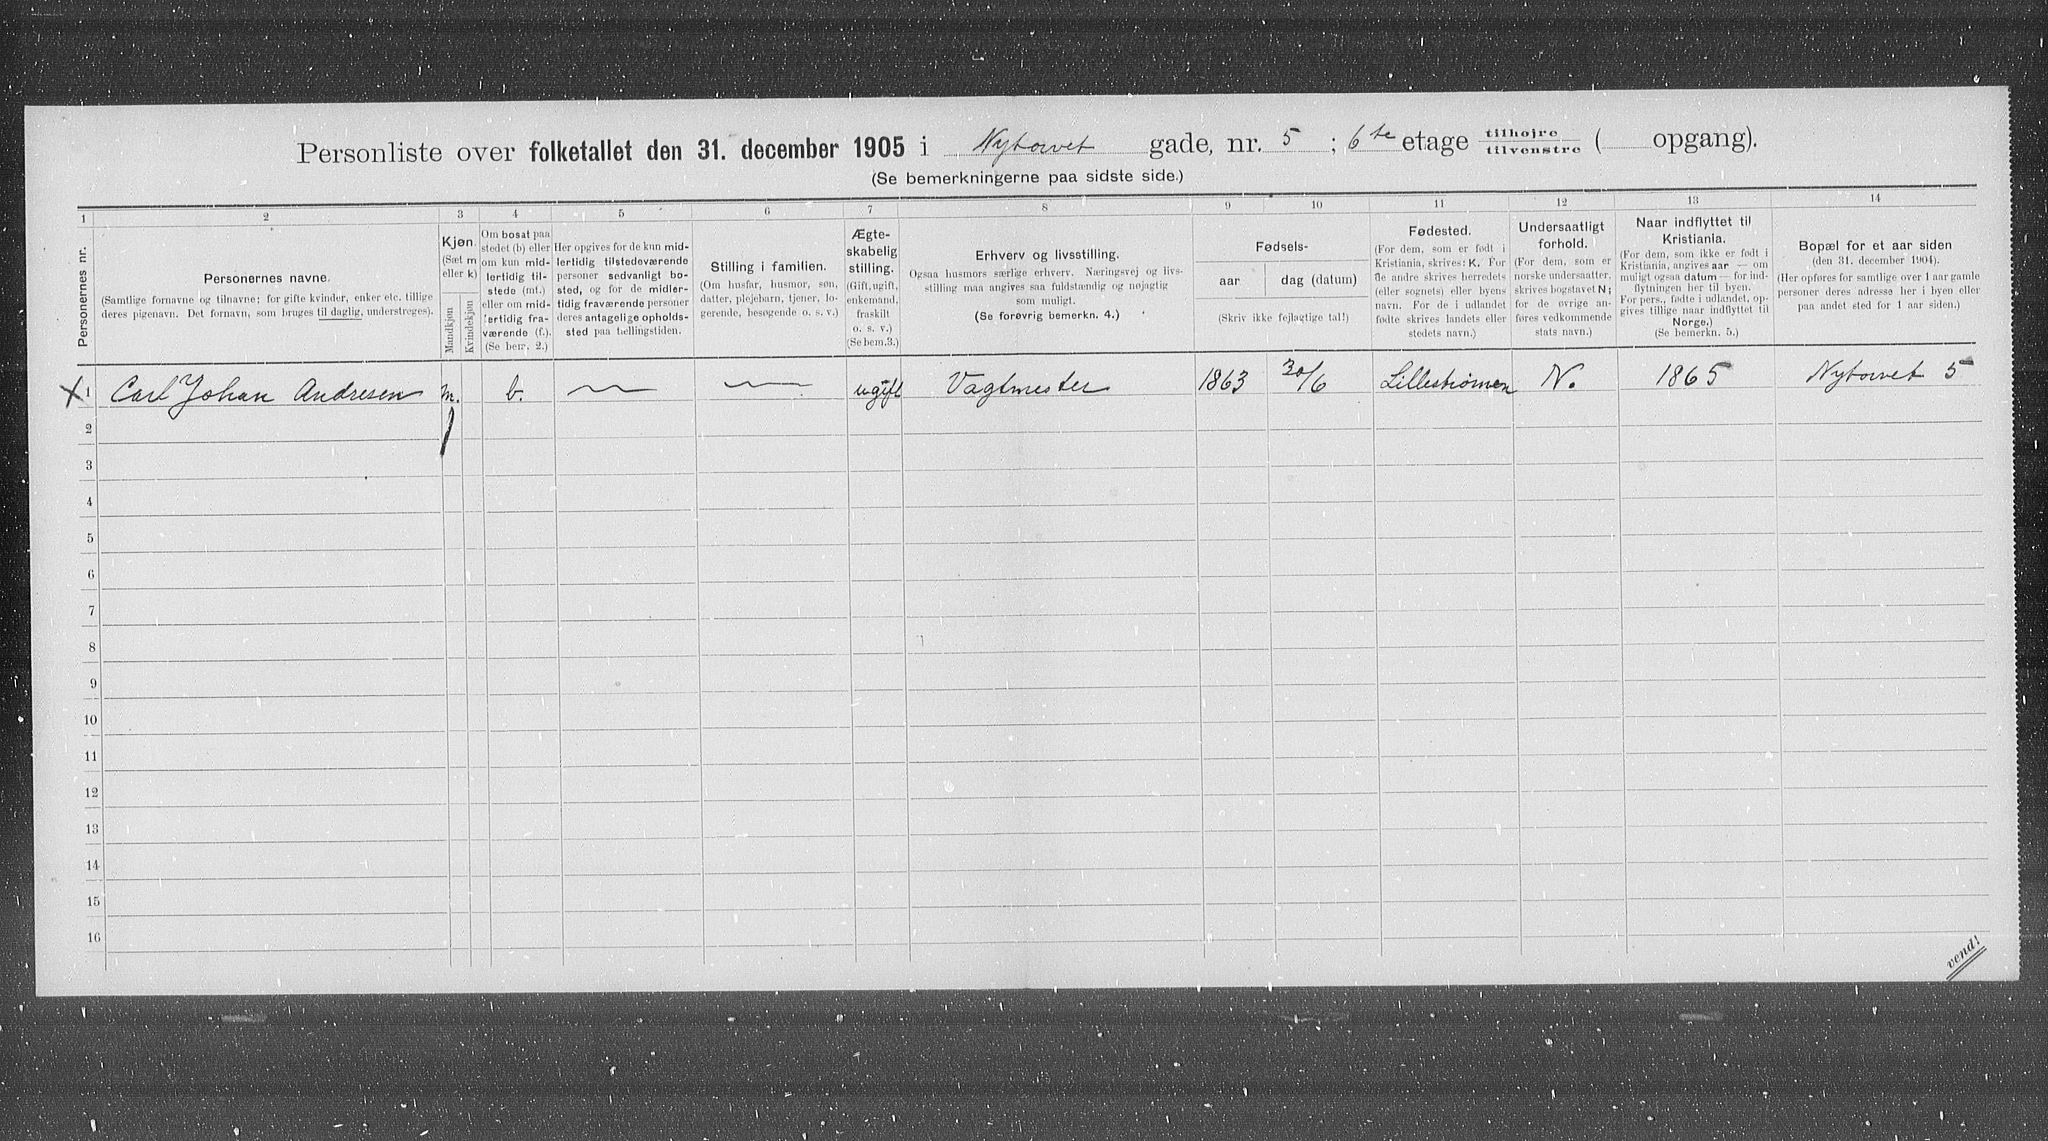 Personliste over folketallet den 31. december 1905 i Nytorvet gade, nr. 5 ; 6te etage tilhøjre tilvenstre ( opgang).
(Se bemerkningerne paa sidste side.)
1 2 3 4 5 6 7 8 9 10 11 12 13 14
Personernes nr.
Personernes navne.
(Samtlige fornavne og tilnavne; for gifte kvinder, enker etc. tillige
deres pigenavn. Det fornavn, som bruges til daglig, understreges).
Kjøn.
(Sæt m
eller k)
Mandkjøn
Kvindekjøn
Om bosat paa
stedet (b) eller
om kun mid-
lertidig til-
stede (mt.)
eller om mid-
lertidig fra-
værende (f.).
(Se bem. 2.)
Her opgives for de kun mid-
lertidig tilstedeværende
personer sedvanligt bo-
sted, og for de midler-
tidig fraværende personer
deres antagelige opholds-
sted paa tællingstiden.
Stilling i familien.
(Om husfar, husmor, søn,
datter, plejebarn, tjener, lo-
gerende, besøgende o. s. v.)
Ægte-
skabelig
stilling.
(Gift, ugift,
enkemand,
fraskilt
o. s. v.)
(Se bem.3.)
Erhverv og livsstilling.
Ogsaa husmors særlige erhverv. Næringsvej og livs-
stilling maa angives saa fuldstændig og nøjagtig
som muligt.
(Se forøvrig bemerkn. 4.)
Fødsels-
aar dag (datum)
(Skriv ikke fejlagtige tal!)
Fødested.
(For dem, som er født i
Kristiania, skrives: K. For
de andre skrives herredets
(eller sognets) eller byens
navn. For de i udlandet
fødte skrives landets eller
stedets navn.)
Undersaatligt
forhold.
(For dem, som er
norske undersaatter,
skrives bogstavet N;
for de øvrige an-
føres vedkommende
stats navn.)
Naar indflyttet til
Kristiania.
(For dem, som ikke er født i
Kristiania, angives aar — om
muligt ogsaa datum — for ind-
flytningen her til byen.
For pers., fødte i udlandet, op-
gives tillige naar indflyttet til
Norge.)
(Se bemerkn. 5.)
Bopæl for et aar siden
(den 31. december 1904).
(Her opføres for samtlige over 1 aar gamle
personer deres adresse her i byen eller
paa andet sted for 1 aar siden.)
X 1 Carl Johan Andresen m. b. — — ugift Vagtmester 1863 30/6 Lillestrømmen N. 1865 Nytorvet 5
2
3
4
5
6
7
8
9
10
11
12
13
14
15
16
vend!